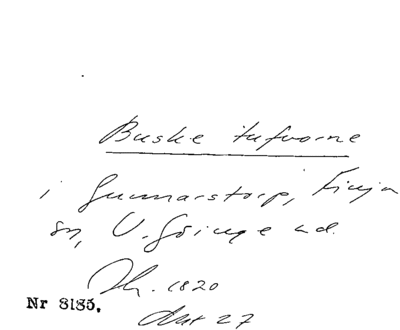 Buske tufvorne
i Gunnarstorp, Finja
sn, V. Göinge hd.
Jh. 1820
Akt 27
Nr 3185.